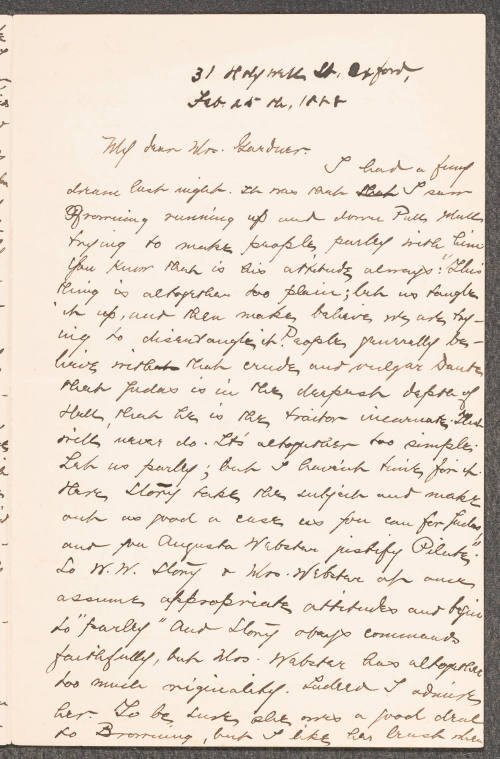 31 Holywell St. Oxford,
Feb. 25 th, 1888
My dear Mrs. Gardner.
I had a funy
dream last night. It was that that I saw
Browning running up and down Pall Mall
trying to make people parley with him
You know that is his attitude always: "This
thing is altogether too plain; let us tangle
it up, and then make believe we are try-
ing to disentangle it". People generally be-
lieve with that crude and vulgar Dante
that Judas is in the deepest depth of
Hell, that he is the traitor incarnate. This
will never do. It's altogether too simple.
Let us parley; but I havent time for it.
Here Story take the subject and make
out as good a case as you can for Judas,
and you Augusta Webster justify Pilate".
So W. W. Story & Mrs. Webster at once
assume appropriate attitudes and begin
to "parley" And Story obeys commands
faithfully, but Mrs. Webster has altogether
too much originality. Indeed I admire
her. To be sure she owes a good deal
to Browning, but I like her best when